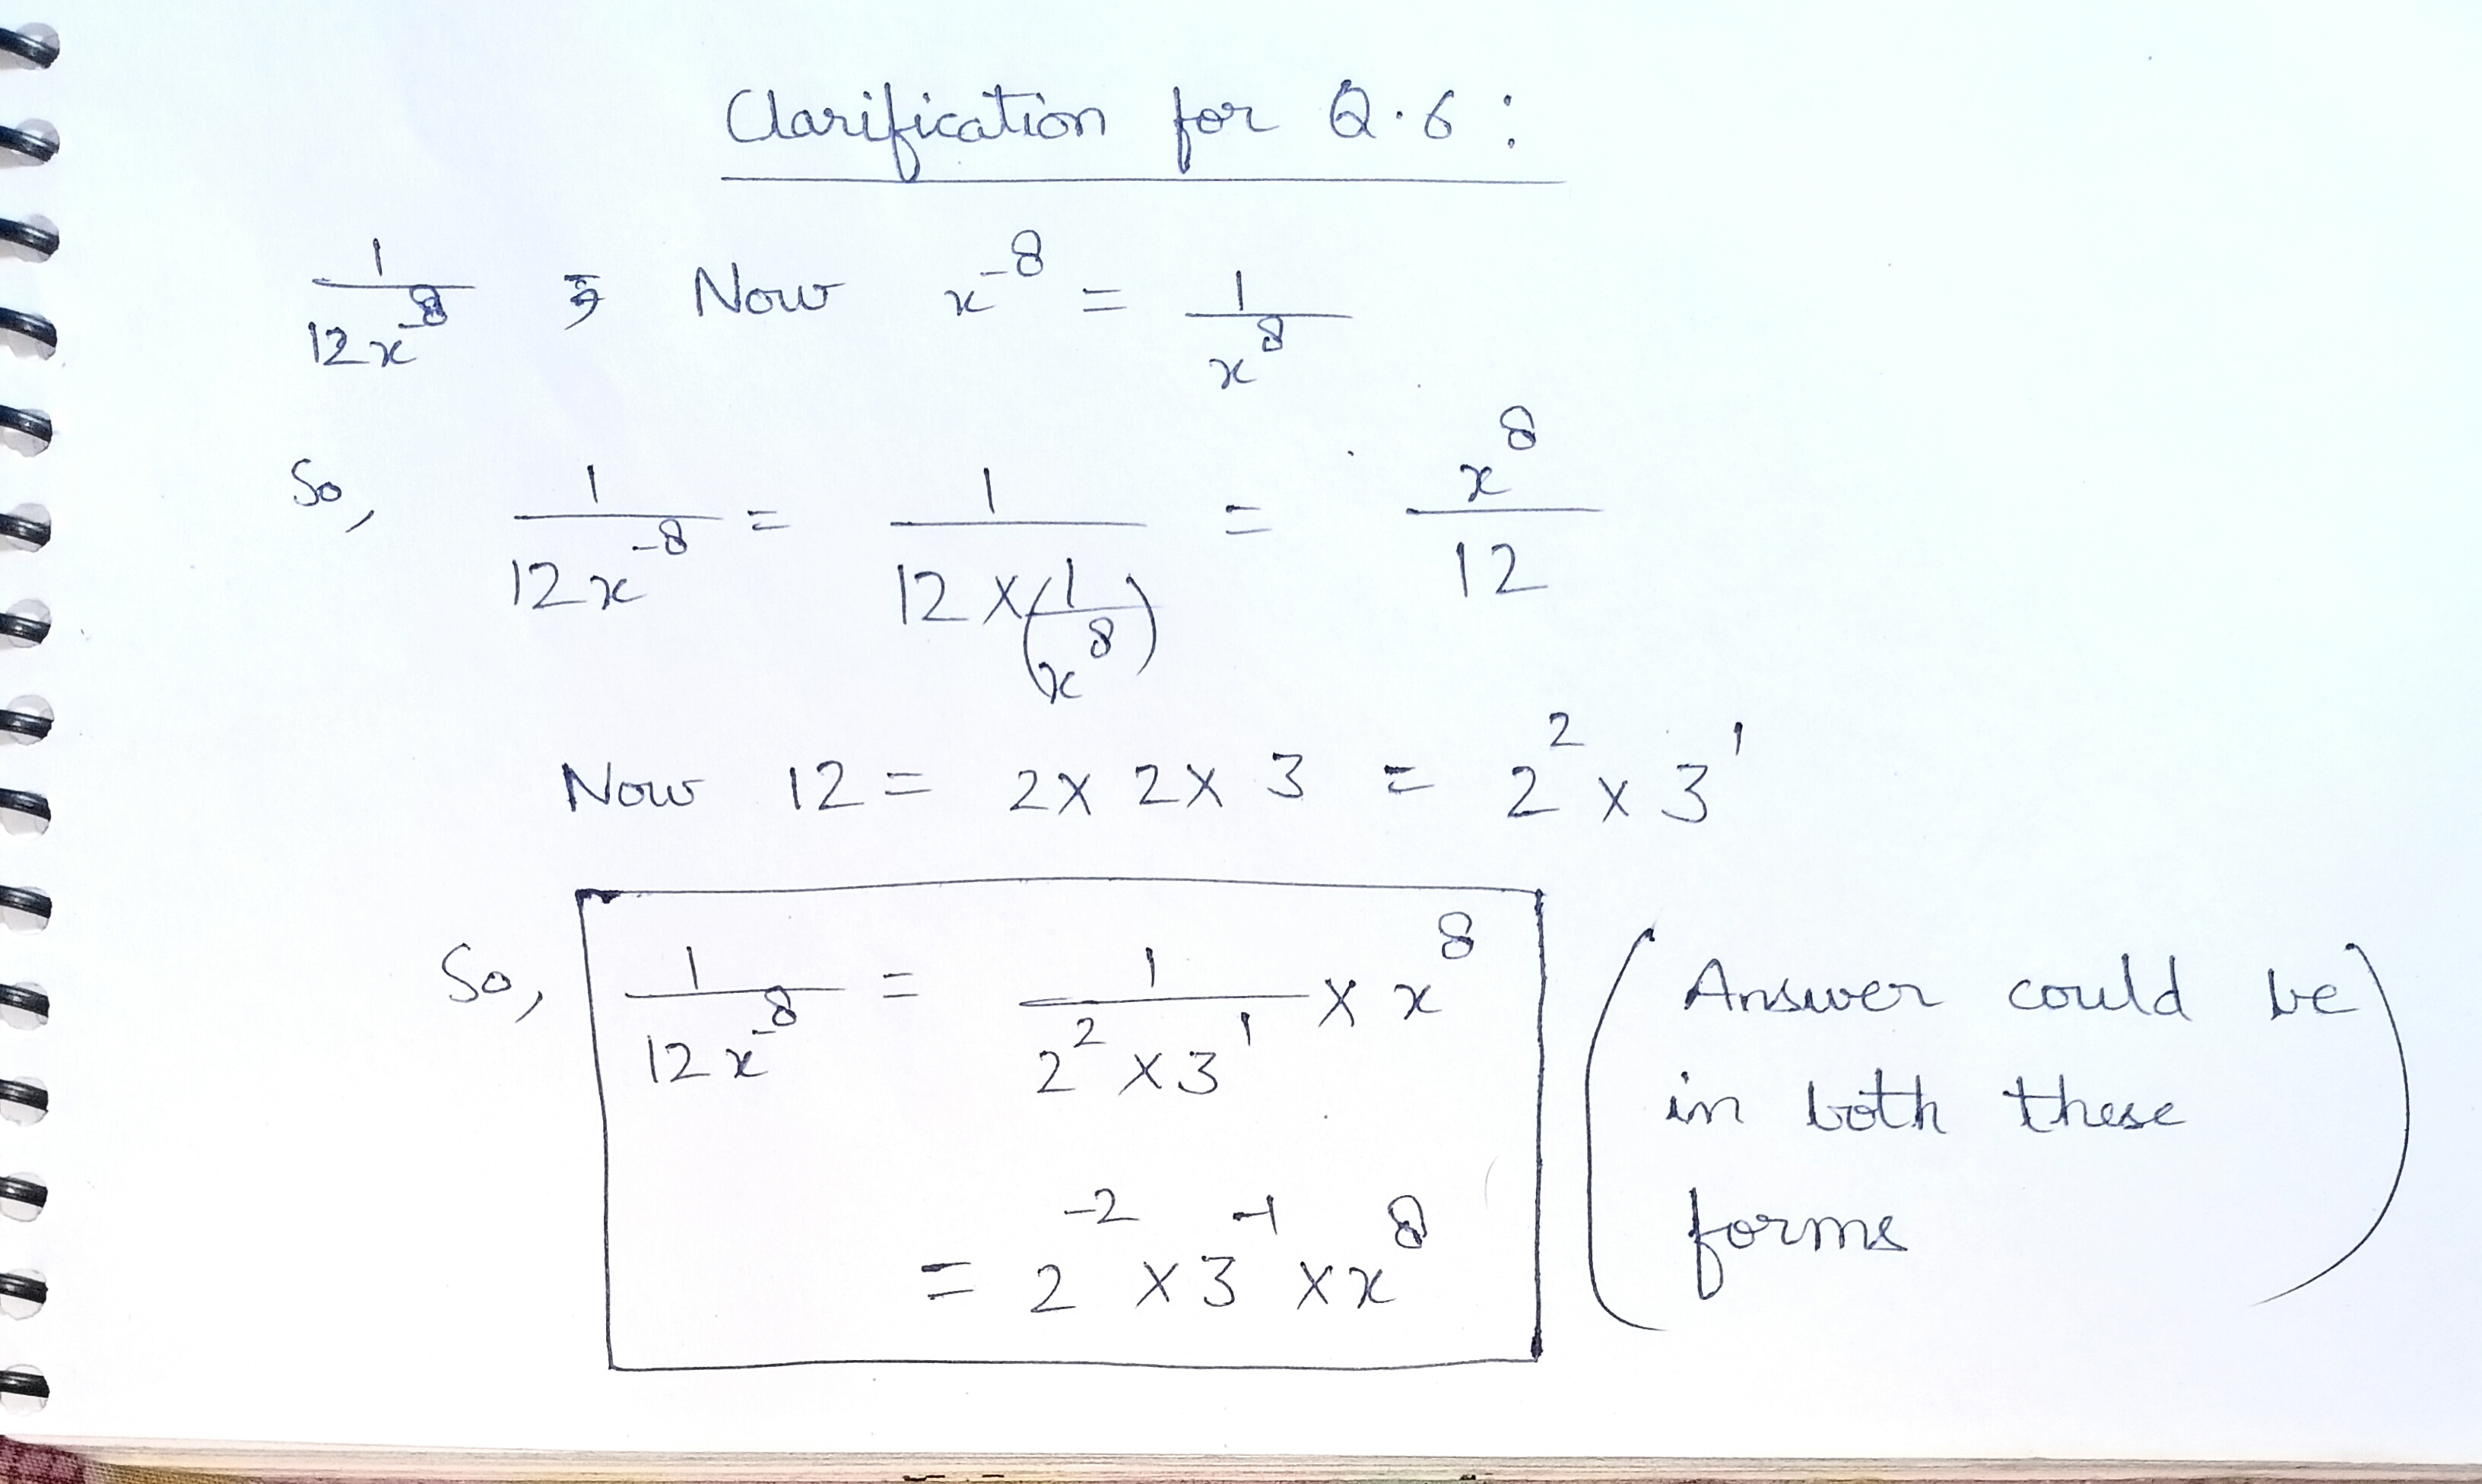 Clarification for Q.6:
1/12x⁻⁸ ; Now x⁻⁸ = 1/x⁸
So, 1/12x⁻⁸ = 1/12×(1/x⁸) = x⁸/12
Now 12 = 2×2×3 = 2²×3¹
So, 1/12x⁻⁸ = 1/2²×3¹ × x⁸
= 2⁻²×3⁻¹×x⁸
(Answer could be
in both these
forms)